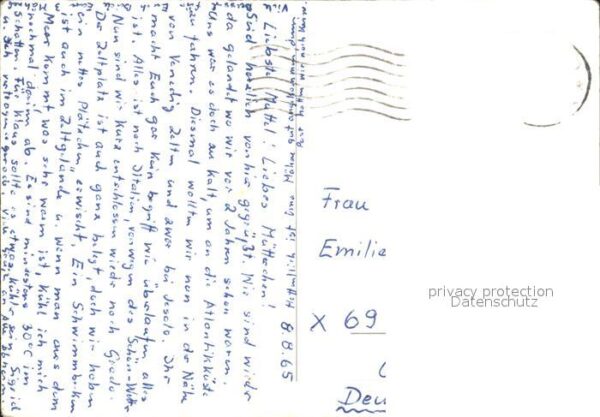 8.8.65
Liebste Muttel! Liebes Mütterchen!
Sind herzlich von hier gegrüßt. Wir sind wieder
da gelandet wo wir vor 2 Jahren schon waren.
Uns war es doch zu kalt, um an die Atlantikküste
zu fahren. Diesmal wollten wir nun in der Nähe
von Venedig zelten und zwar bei Jesolo. Ihr
macht Euch gar kein Begriff wie überlaufen alles
ist. Alles ist nach Italien, von wegen des Schön-Wetter
Nun sind wir kurz entschlossen wieder nach Grado.
Der Zeltplatz ist auch ganz belegt doch wir haben
ein nettes Plätzchen erwischt. Ein Schwimmbecken
ist auch im Zeltgelände u. wenn man aus dem
Meer kommt was sehr warm ist, kühl ich mich
nochmal darin ab. Es sind mindestens 30°C im
Schatten. Für Klaus sollte es etwas kühler sein. Sigi ich
Frau
Emilie
X 69
Deu
privacy protection
Datenschutz